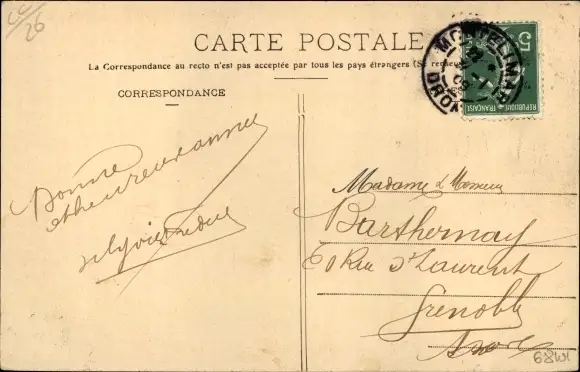 26
CARTE POSTALE
La Correspondance au recto n'est pas acceptée par tous les pays étrangers (Se
CORRESPONDANCE
Bonne
et heureuse année
MONTELIMAR
5
REPUBLIQUE FRANÇAISE
Madame & Monsieur
Barthernay
60 Rue St Laurent
Grenoble
Isère